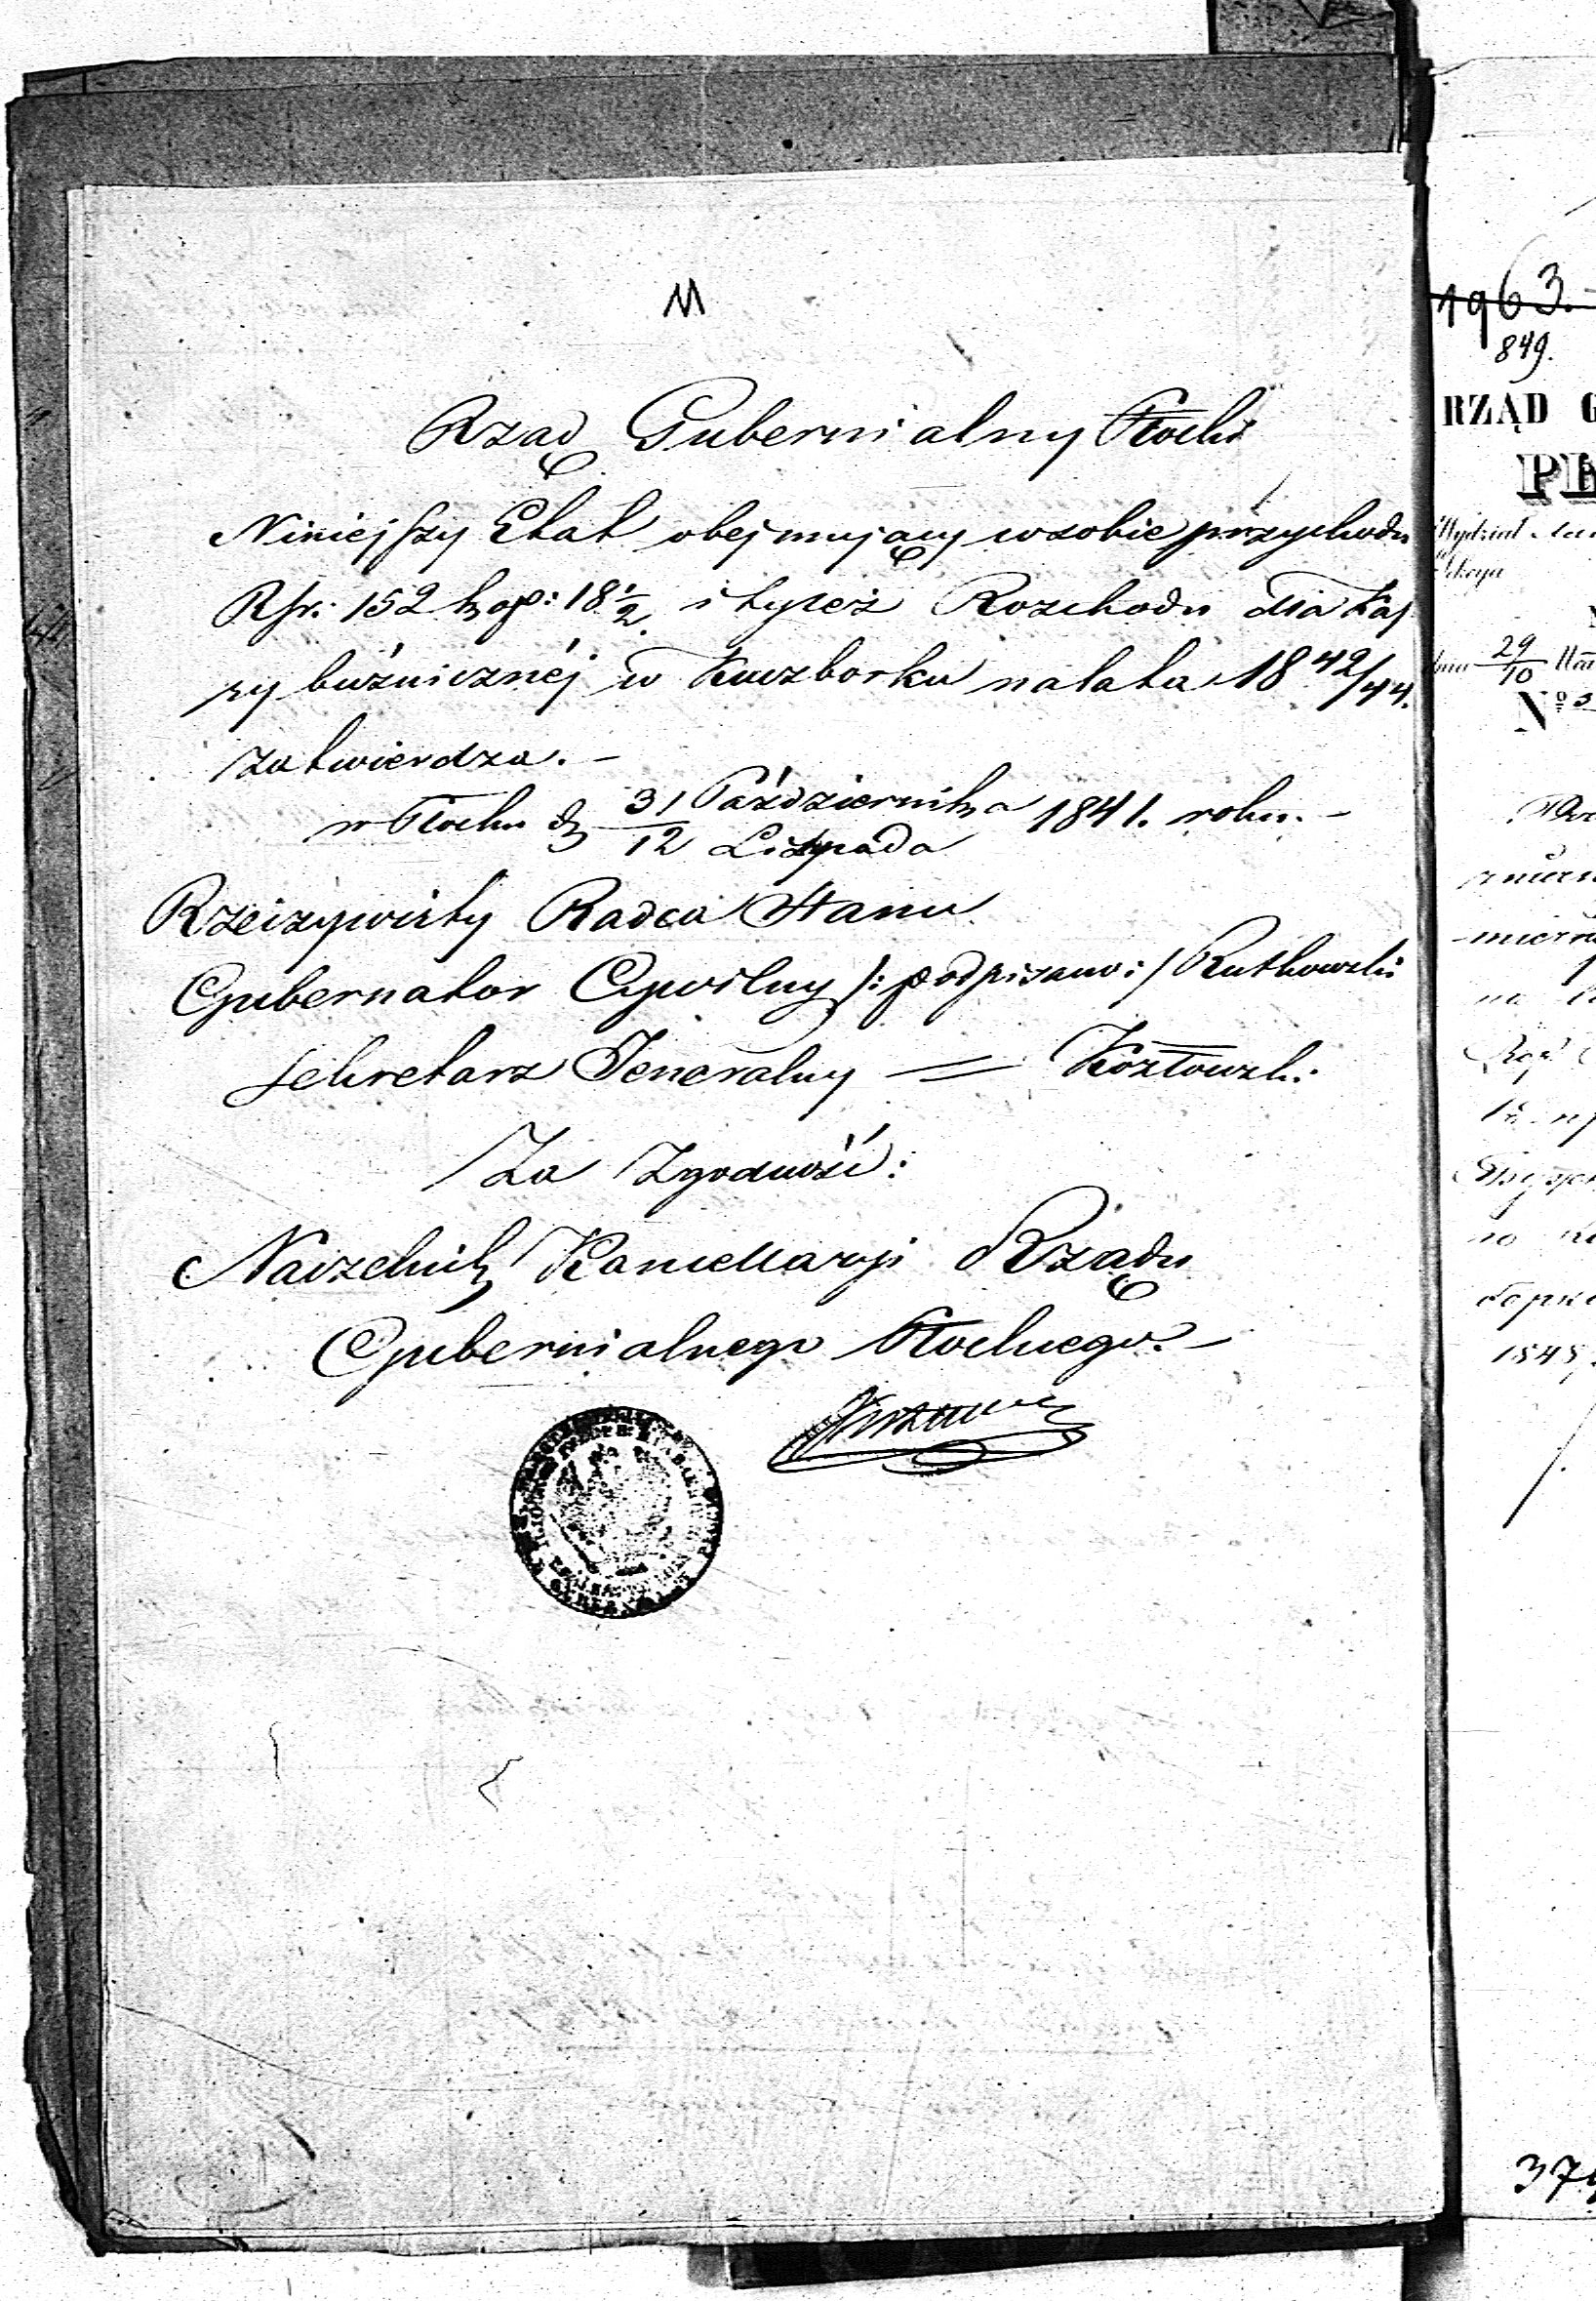 M
Rząd Gubernialny Płocki
Niniejszy Etat obejmujący wsobie przychodu
Rsr: 152 kop: 18 1/2 i tyleż Rozchodu dla Kas
sy bużnicznéj w Kuczborku nalata 18 42/44.
zatwierdza. –
w Płocku d 31 Października / 12 Listopada 1841. roku. –
Rzeczywisty Radca Stanu
Gubernator Cywilny /: podpisano :/ Rutkowski
Sekretarz Jeneralny = Kozłowski.
Za Zgodność:
Naczelnik Kancellaryi Rządu
Gubernialnego Płockiego. –
1963.
849.
RZĄD G
PŁ
Wydział
Sekcya
dnia 29/10
Nº 3
1845
374